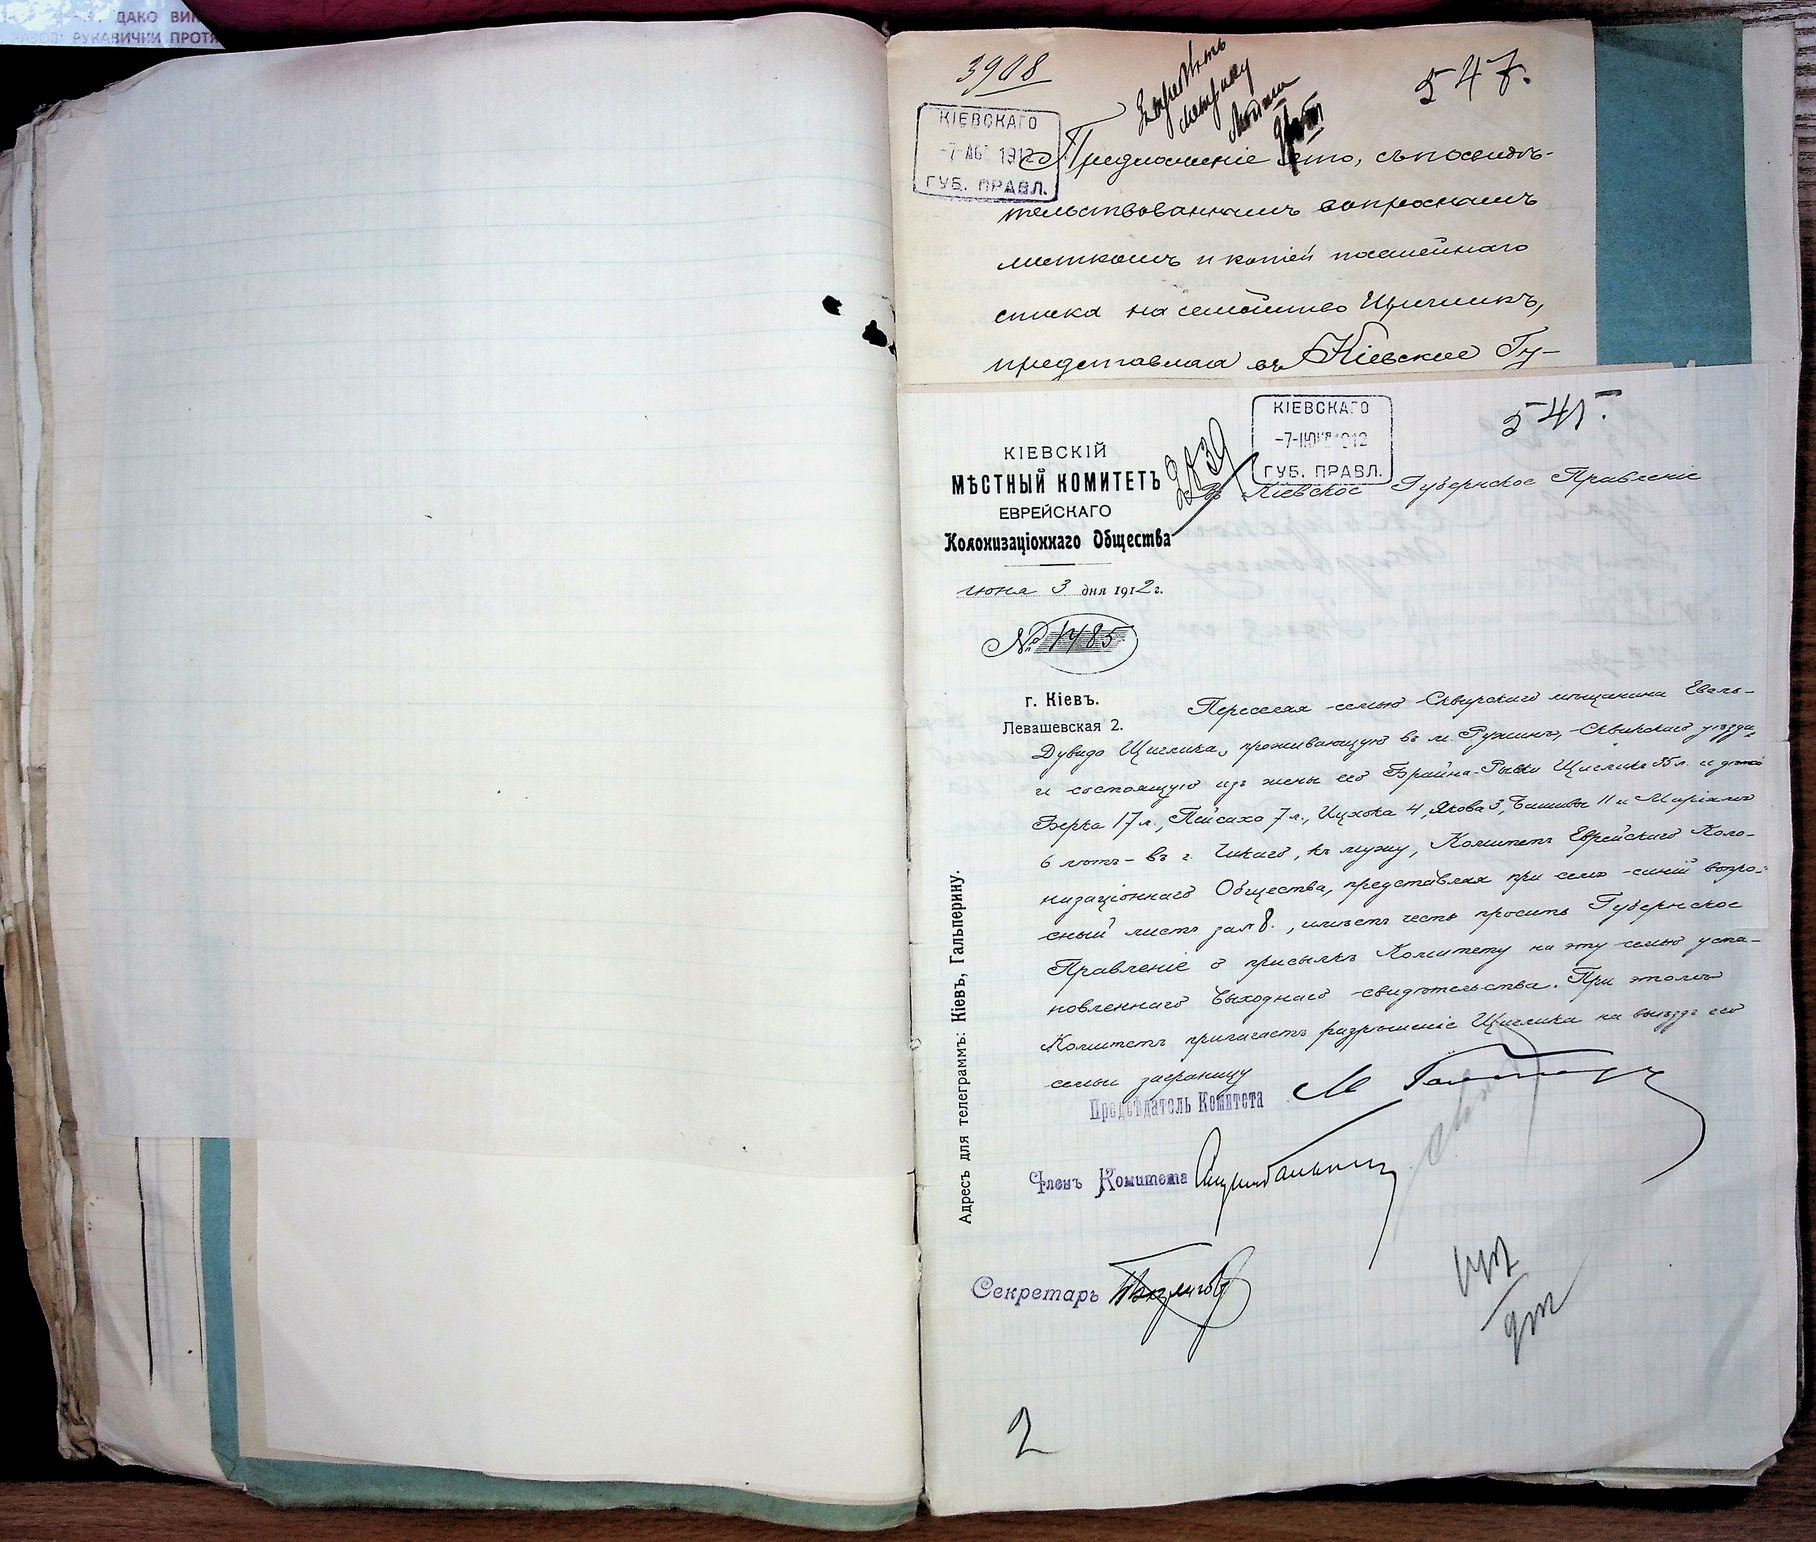 ДАКО ВИК
РУКАВИЧКИ ПРОТЯ
3908
547.
КІЕВСКАГО
-7-АВГ 1912
ГУБ. ПРАВЛ.
Предложеніе это, съ посвидѣ-
тельствованнымъ вопроснымъ
листкомъ и копіей посемейнаго
списка на семейство Щигликъ,
представляя въ Кіевское Гу-
545.
КІЕВСКАГО
-7-ІЮН 1912
ГУБ. ПРАВЛ.
2839
Въ Кіевское Губернское Правленіе
КІЕВСКІЙ
МѢСТНЫЙ КОМИТЕТЪ
ЕВРЕЙСКАГО
Колонизаціоннаго Общества
июня 3 дня 1912 г.
№ 1485
г. Кіевъ.
Левашевская 2.
Переселяя семью Сквирскаго мѣщанина Еваль-
Дувида Щиглика, проживающую въ м. Ружинѣ, Сквирскаго уѣзда,
и состоящую изъ жены его Брайна-Рывки Щиглика 35 л. и дѣтей
Берка 17 л., Пейсаха 7 л., Ицхока 4, Якова 3, Башивы 11 и Маріамъ
6 лѣтъ - въ г. Чикаго, къ мужу, Комитетъ Еврейскаго Коло-
низаціоннаго Общества, представляя при семъ синій вопро-
сный листъ за № 8., имѣетъ честь просить Губернское
Правленіе о присылкѣ Комитету на эту семью уста-
новленнаго выходнаго свидѣтельства. При этомъ
Комитетъ прилагаетъ разрѣшеніе Щиглика на выѣздъ его
семьи заграницу
Предсѣдатель Комитета
Членъ Комитета
Секретарь
Адресъ для телеграммъ: Кіевъ, Гальперину.
2